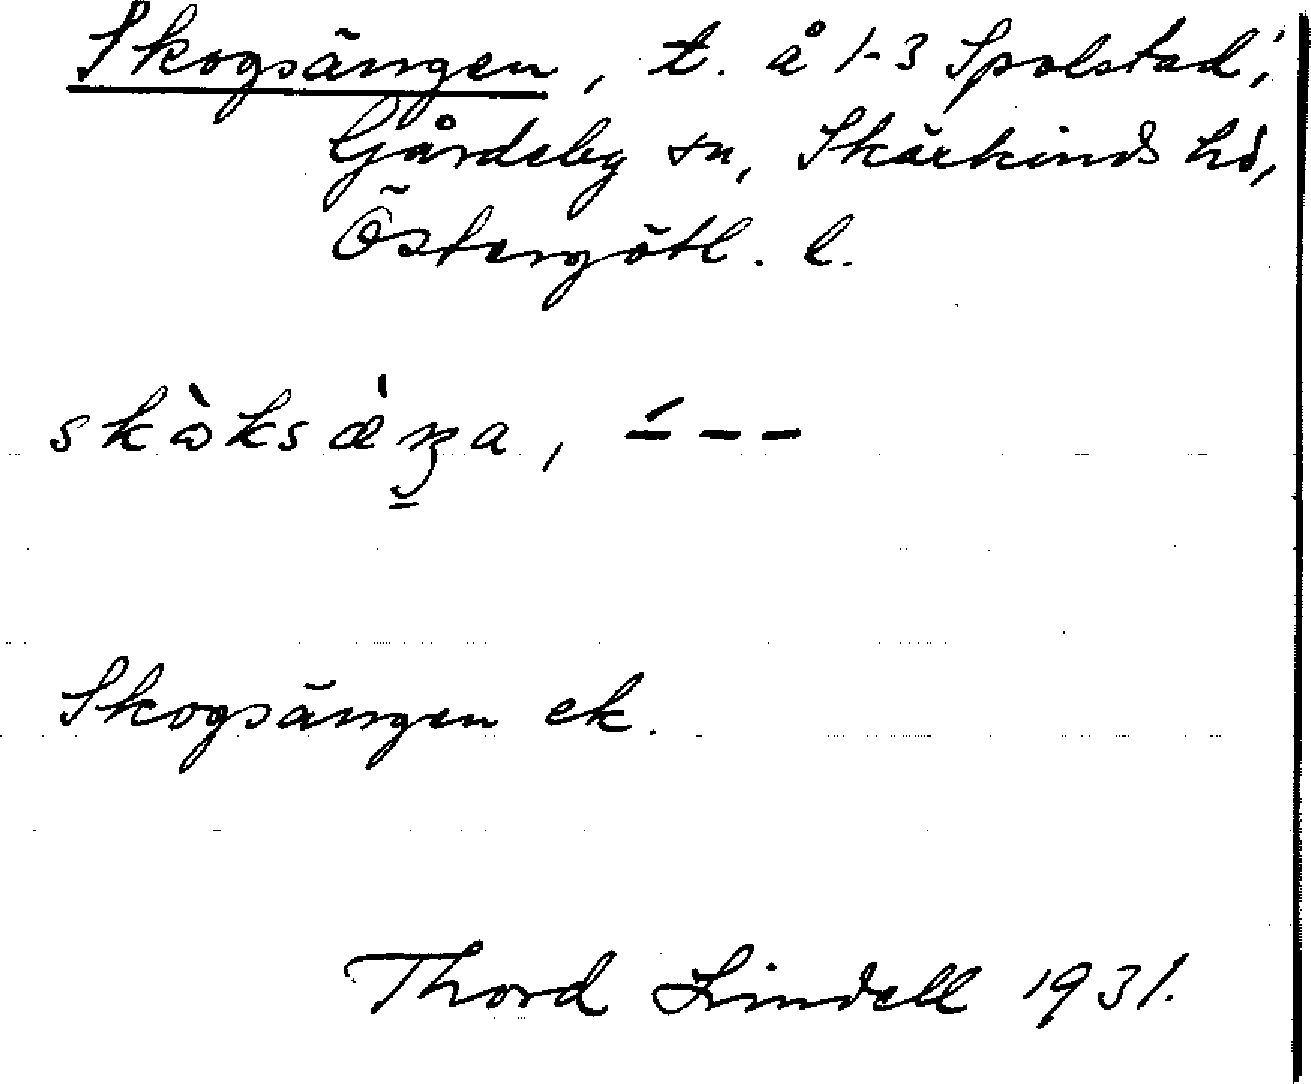 Skogsängen, t. å 1-3 Spolstad,
Gårdeby sn, Skärkinds hd,
Östergötl. l.
Skogsängen ek.
Thord Lindell 1931.